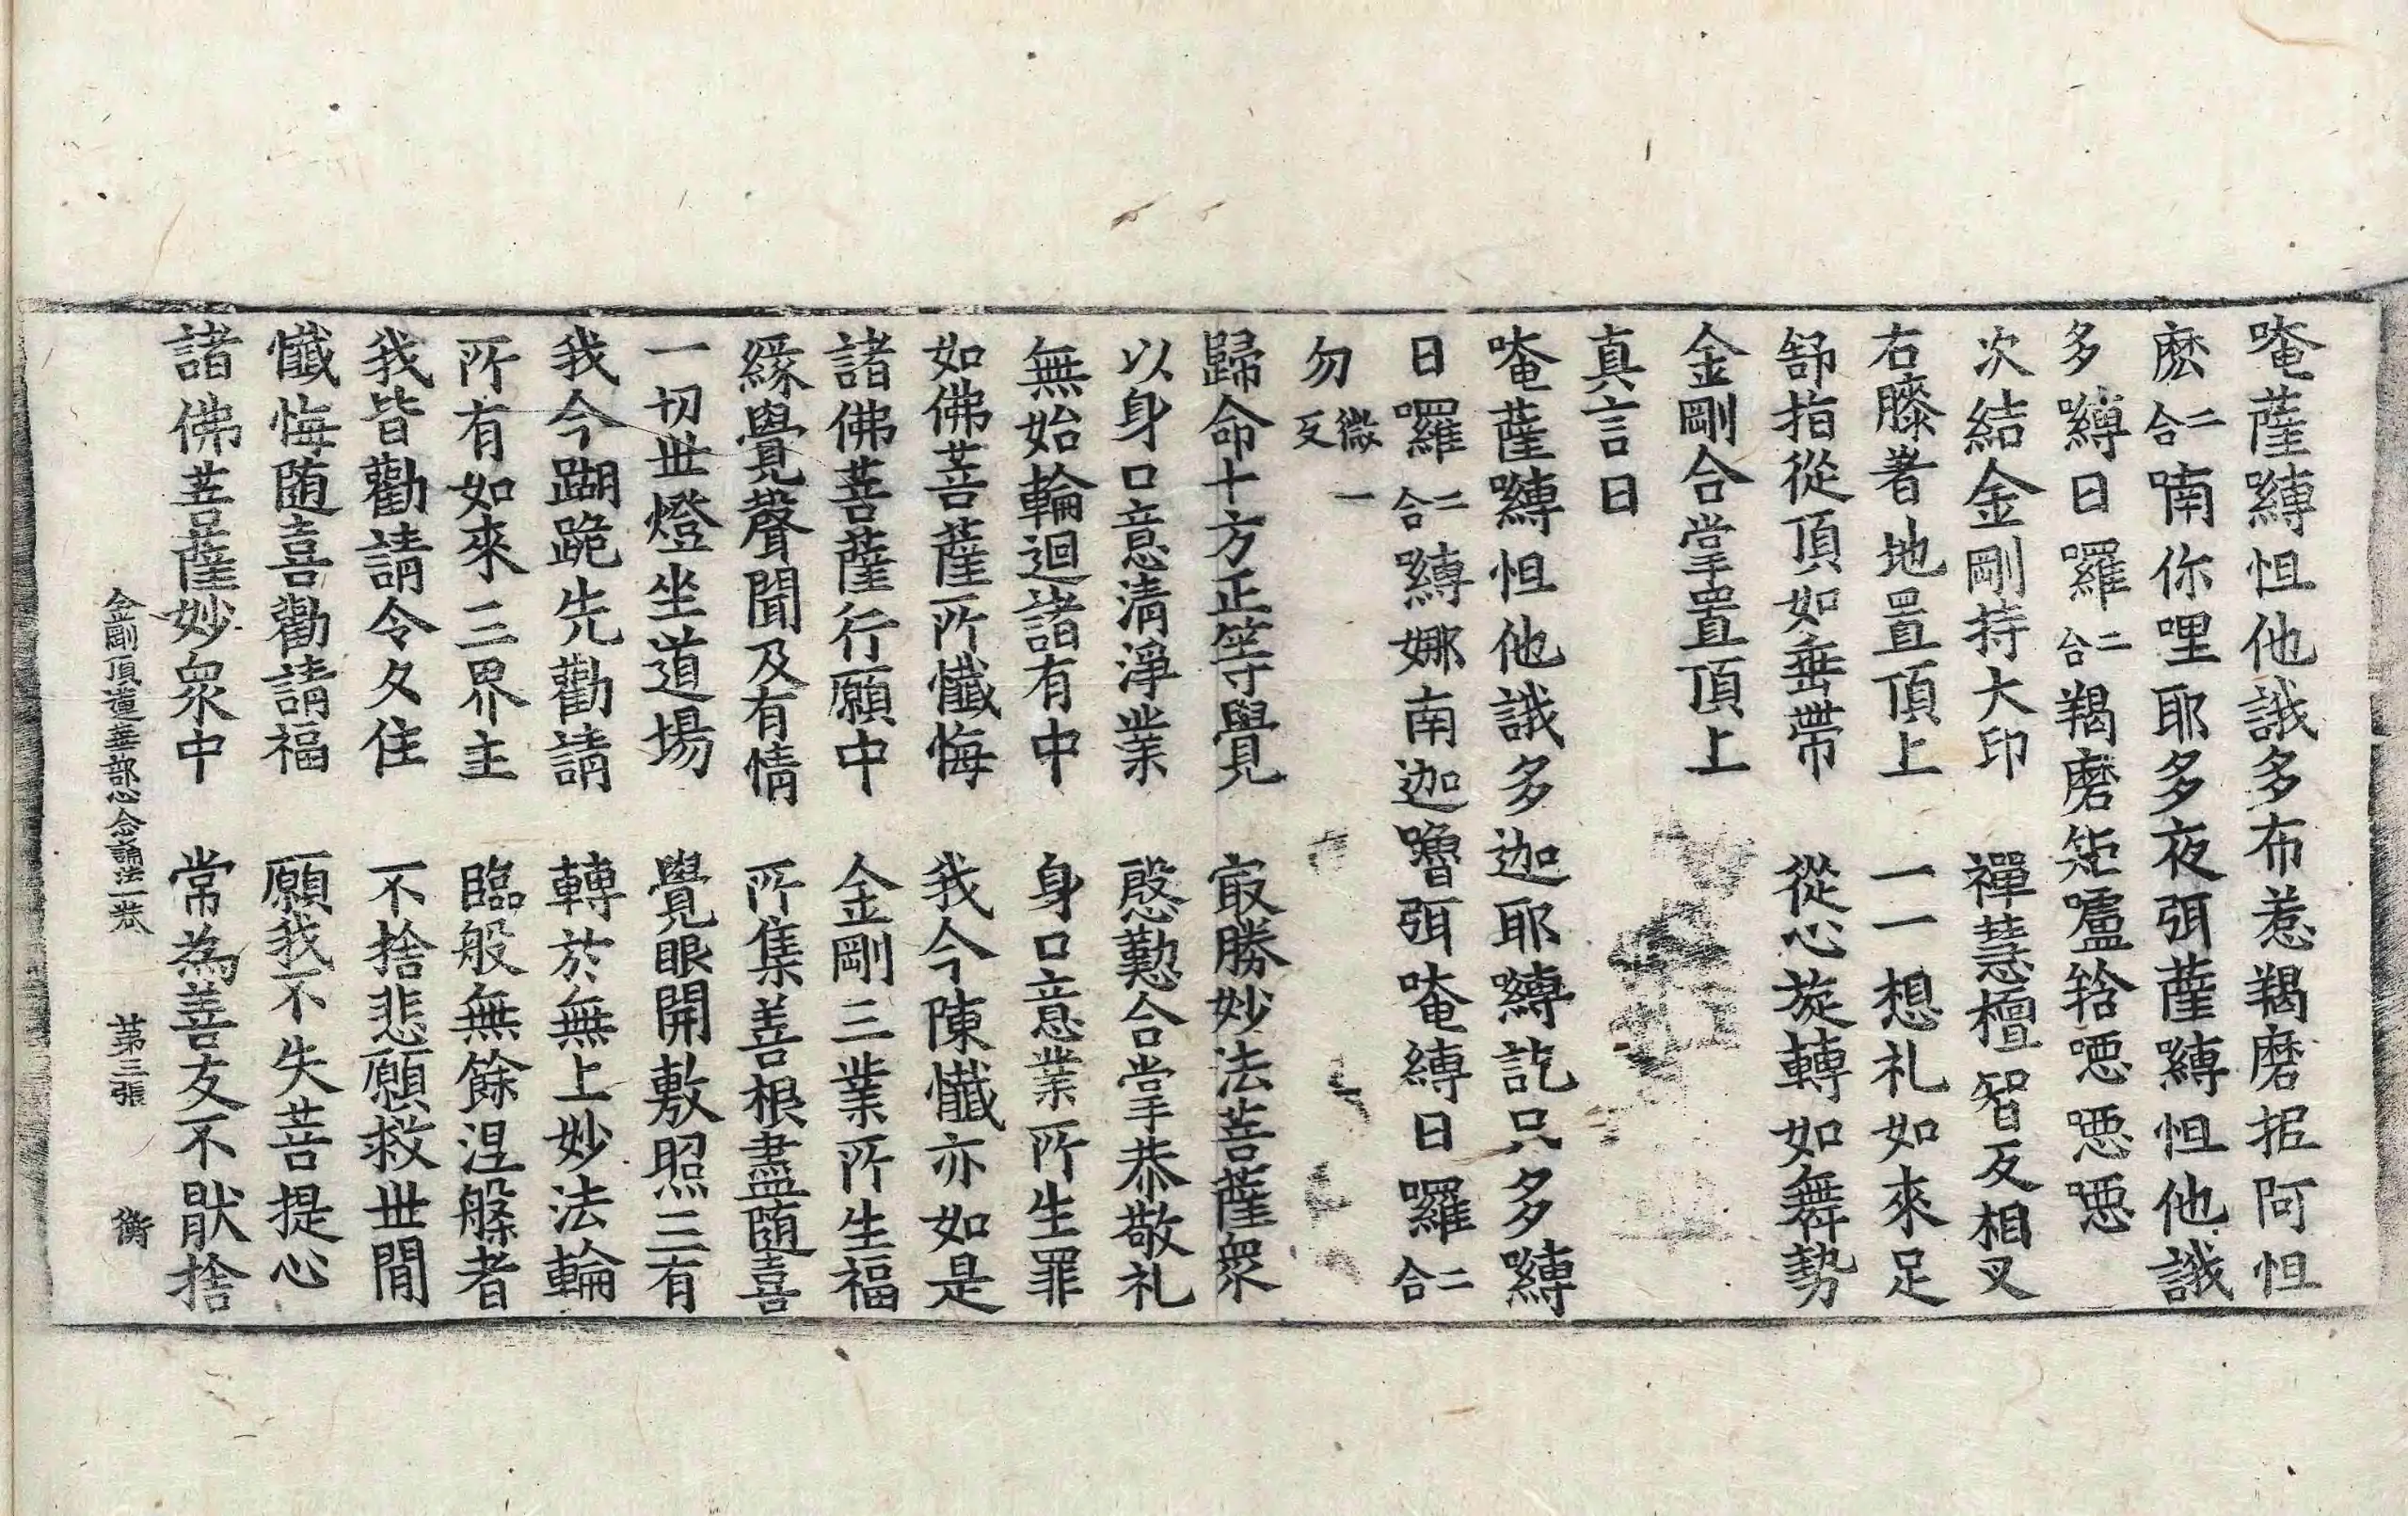 唵薩嚩怛他誐多布惹羯磨抳阿怛
麽二合喃你哩耶多夜弭薩嚩怛他誐
多嚩日囉二合羯磨矩嚧𤙖噁噁噁
次結金剛持大印　禪慧檀智反相叉
右膝著地置頂上　一一想礼如來足
舒指從頂如垂帶　從心旋轉如舞勢
金剛合掌置頂上
真言曰
唵薩嚩怛他誐多迦耶嚩訖只多嚩
日囉二合嚩娜南迦嚕弭唵嚩日囉二合
勿微一反
歸命十方正等覺　㝡勝妙法菩薩衆
以身口意清淨業　慇懃合掌恭敬礼
無始輪迴諸有中　身口意業所生罪
如佛菩薩所懺悔　我今陳懺亦如是
諸佛菩薩行願中　金剛三業所生福
緣覺聲聞及有情　所集善根盡随喜
一切世燈坐道場　覺眼開敷照三有
我今蹦跪先勸請　轉於無上妙法輪
所有如來三界主　臨般無餘涅槃者
我皆勸請令久住　不捨悲願救世間
懺悔随喜勸請福　願我不失菩提心
諸佛菩薩妙衆中　常為善友不猒捨
金剛頂蓮華部心念誦法一卷　第三張　衡